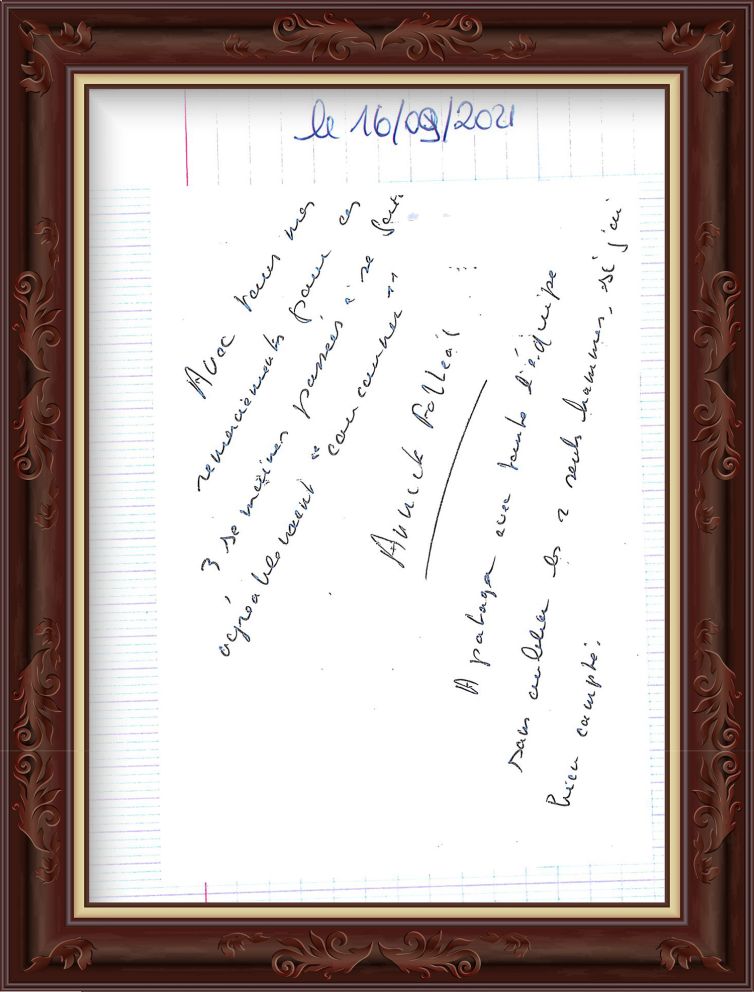 le 16/09/2021
Avec tous mes
remerciements pour ces
3 semaines passées à se faire
agréablement "coucouner"
Annick
A partager avec toute l'équipe
sans oublier les 2 seuls hommes, si j'ai
bien compté.